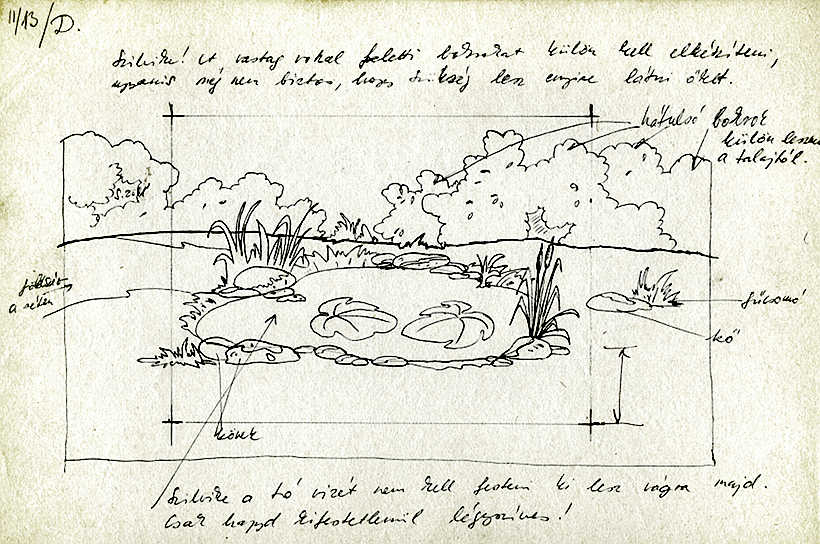 II/13/D.
Szilvike! A vastag vonal feletti bokrokat külön kell elkészíteni,
ugyanis még nem biztos, hogy szükség lesz ennyire látni őket.
hátulsó bokrok
külön lesznek
a talajtól.
a sétán
fűcsomó
kő
kövek
Szilvike a tó vizét nem kell festeni ki lesz vágva majd.
Csak hagyd kifestetlenül légyszíves!